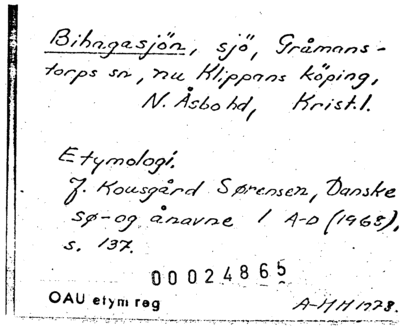 Bihagasjön, sjö, Gråmans-
torps sn, nu Klippans köping,
N. Åsbo hd, Krist.l.
Etymologi.
J. Kousgård Sørensen, Danske
sø- og ånavne 1 A-D (1968),
s. 137.
00024865
OAU etym reg
A-HH 1978.